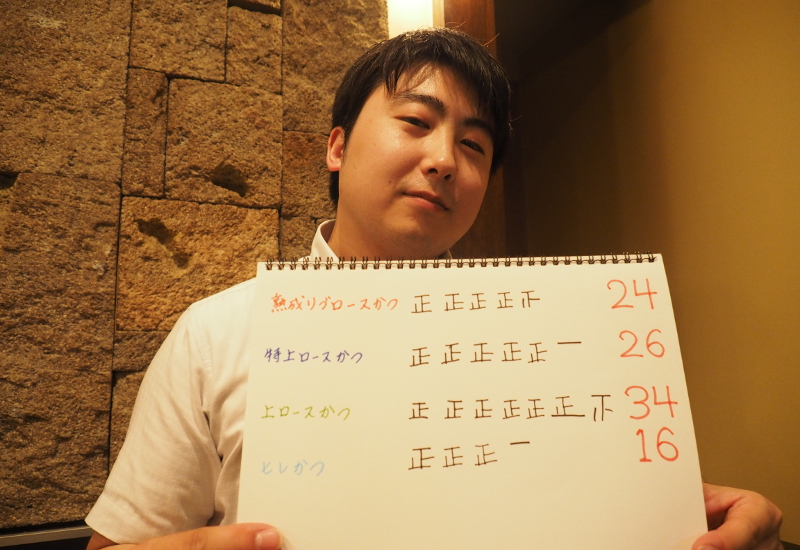 熟成リブロースかつ 正 正 正 正 下 24
特上ロースかつ 正 正 正 正 正 一 26
上ロースかつ 正 正 正 正 正 正 下 34
ヒレかつ 正 正 正 一 16